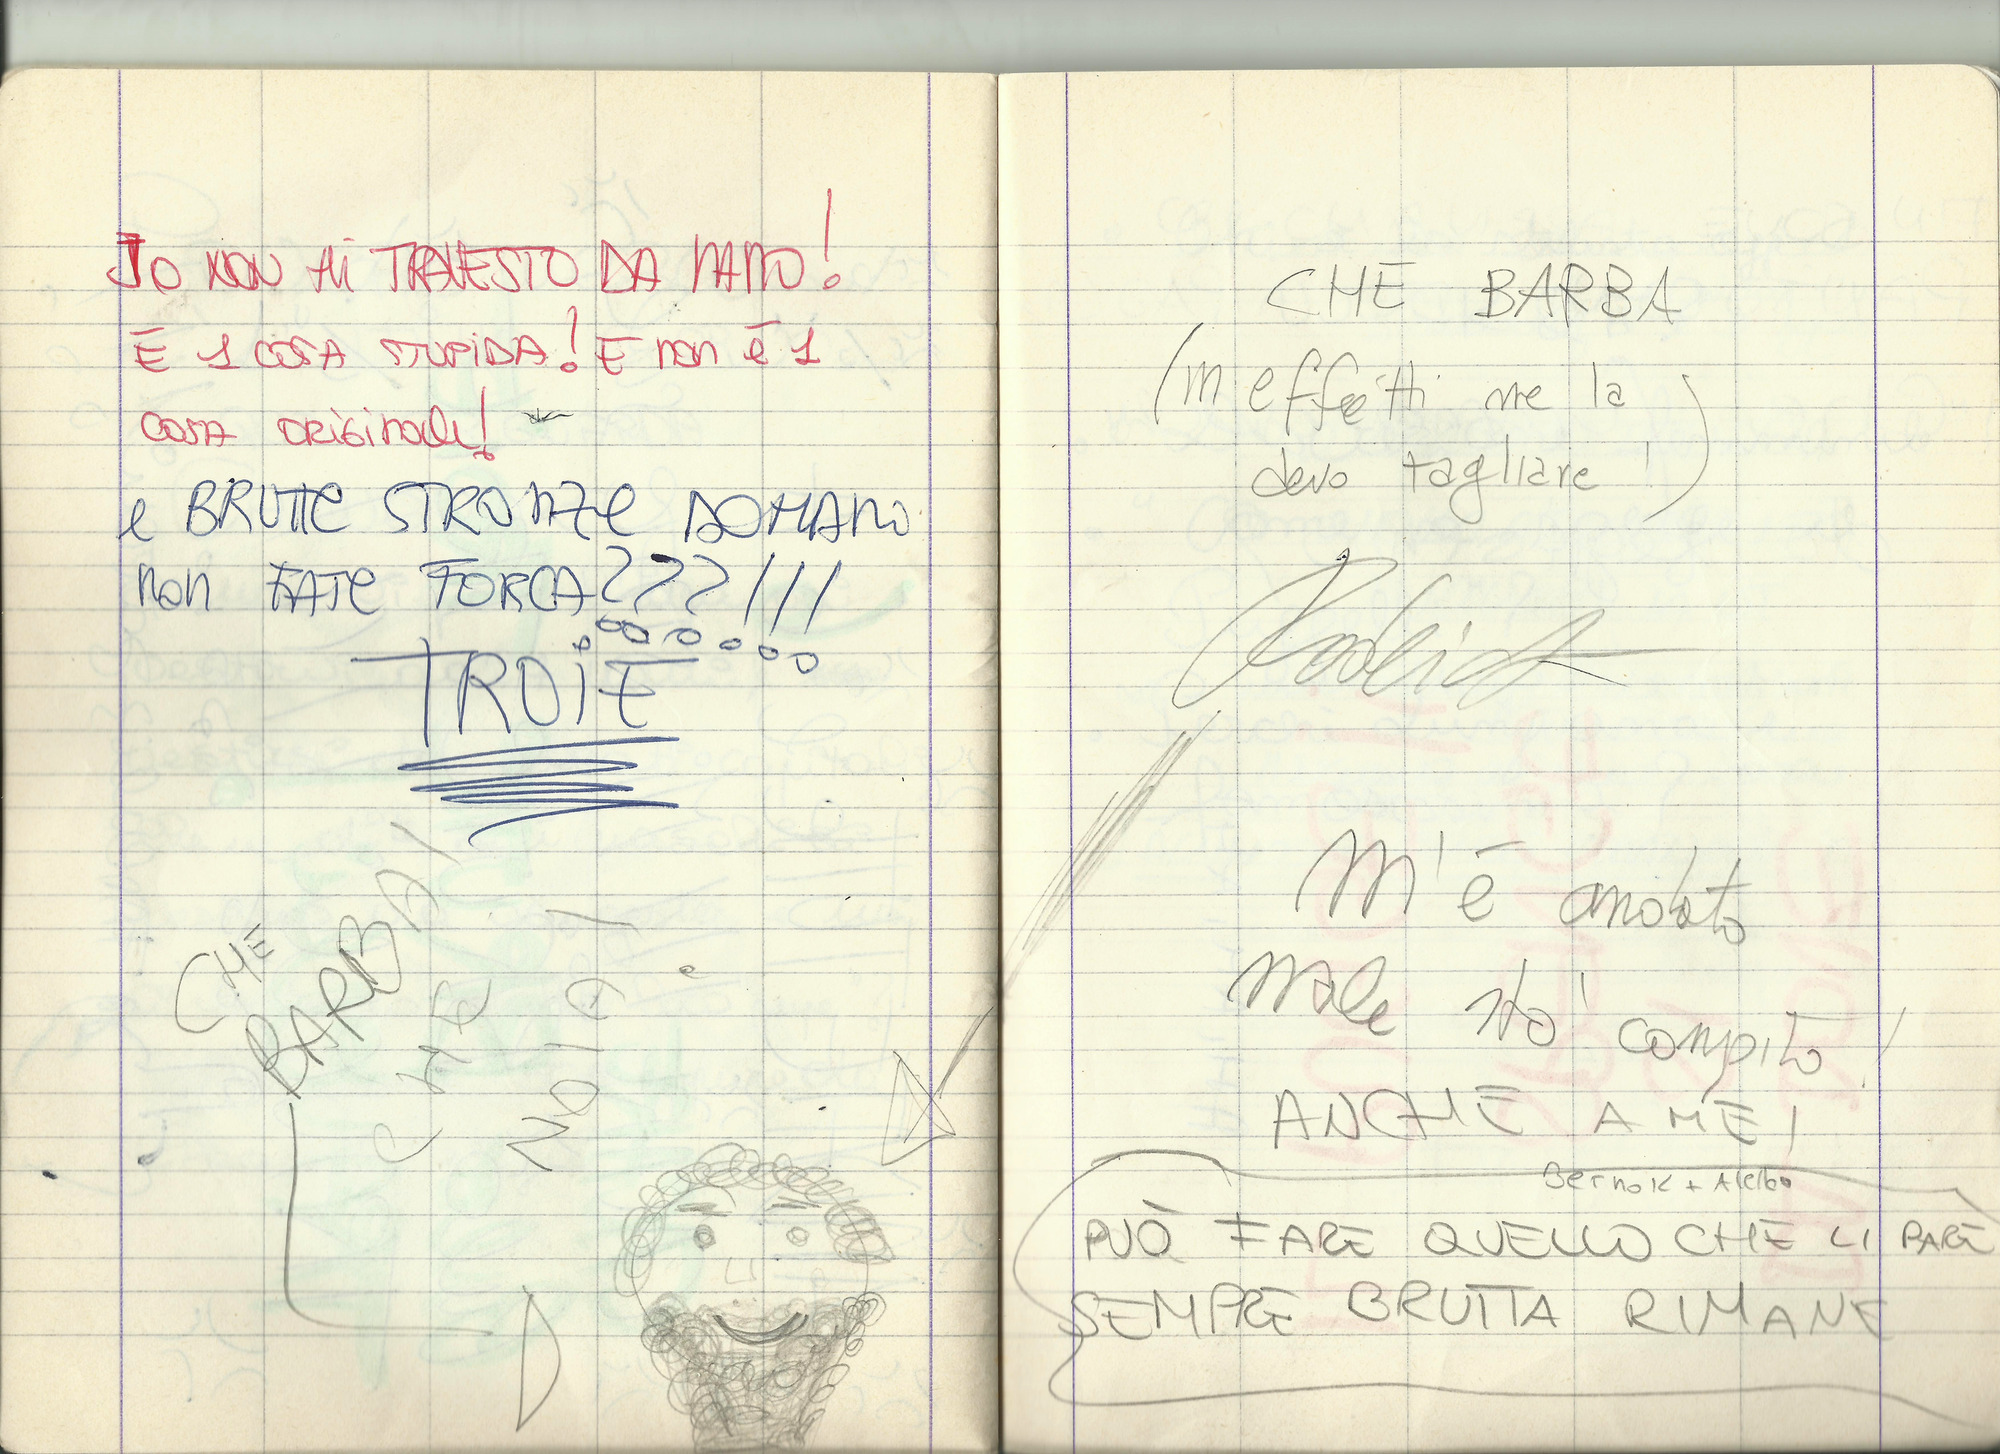 Io NON Mi TRAVESTO DA NANO!
È 1 COSA STUPIDA! E non è 1
COSA ORIGINALE!
e BRUTTE STRONZE DOMANI
non FATE FORCA???!!!
TROIE
CHE
BARBA!
CHE
NOIA!
CHE BARBA
(in effetti me la
devo tagliare!)
M'è andato
male sto' compito!
ANCHE A ME!
Bernok + Alelbo
PUÒ FARE QUELLO CHE LI PARE
SEMPRE BRUTTA RIMANE